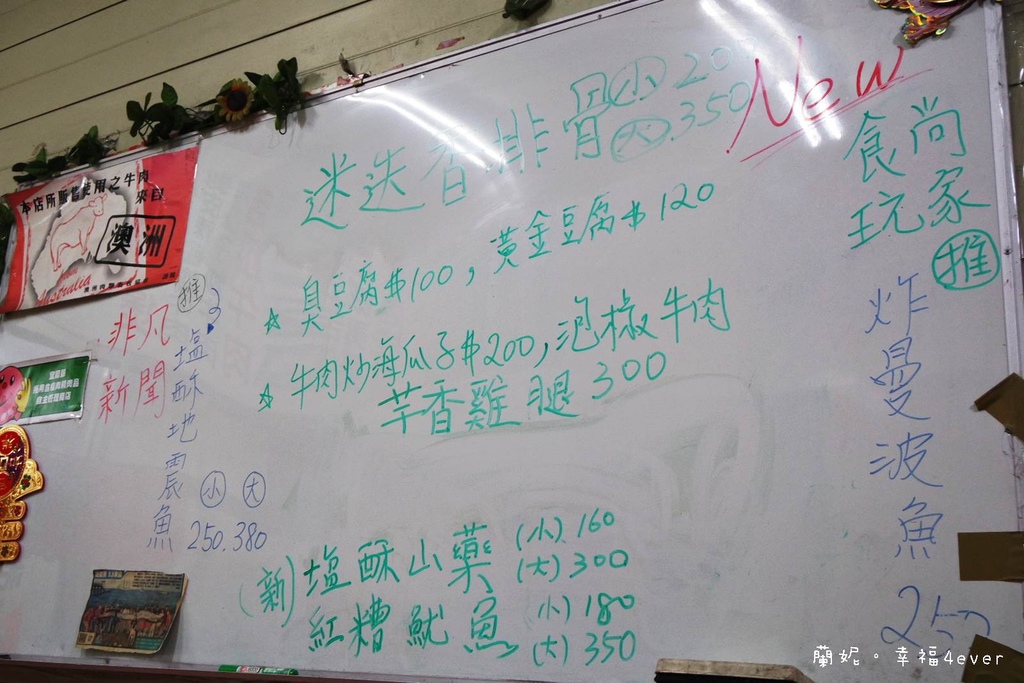 迷迭香排骨 小 20
大 350
New
食尚
玩家
推
炸曼波魚
250
臭豆腐$100，黃金豆腐$120
牛肉炒海瓜子$200，泡椒牛肉
芋香雞腿 300
(新)塩酥山藥 (小) 160
(大) 300
紅糟魷魚 (小) 180
(大) 350
非凡
新聞
推
塩酥地震魚
小 大
250. 380
本店所販售使用之牛肉
來自
澳洲
Australia
蘭妮。幸福4ever